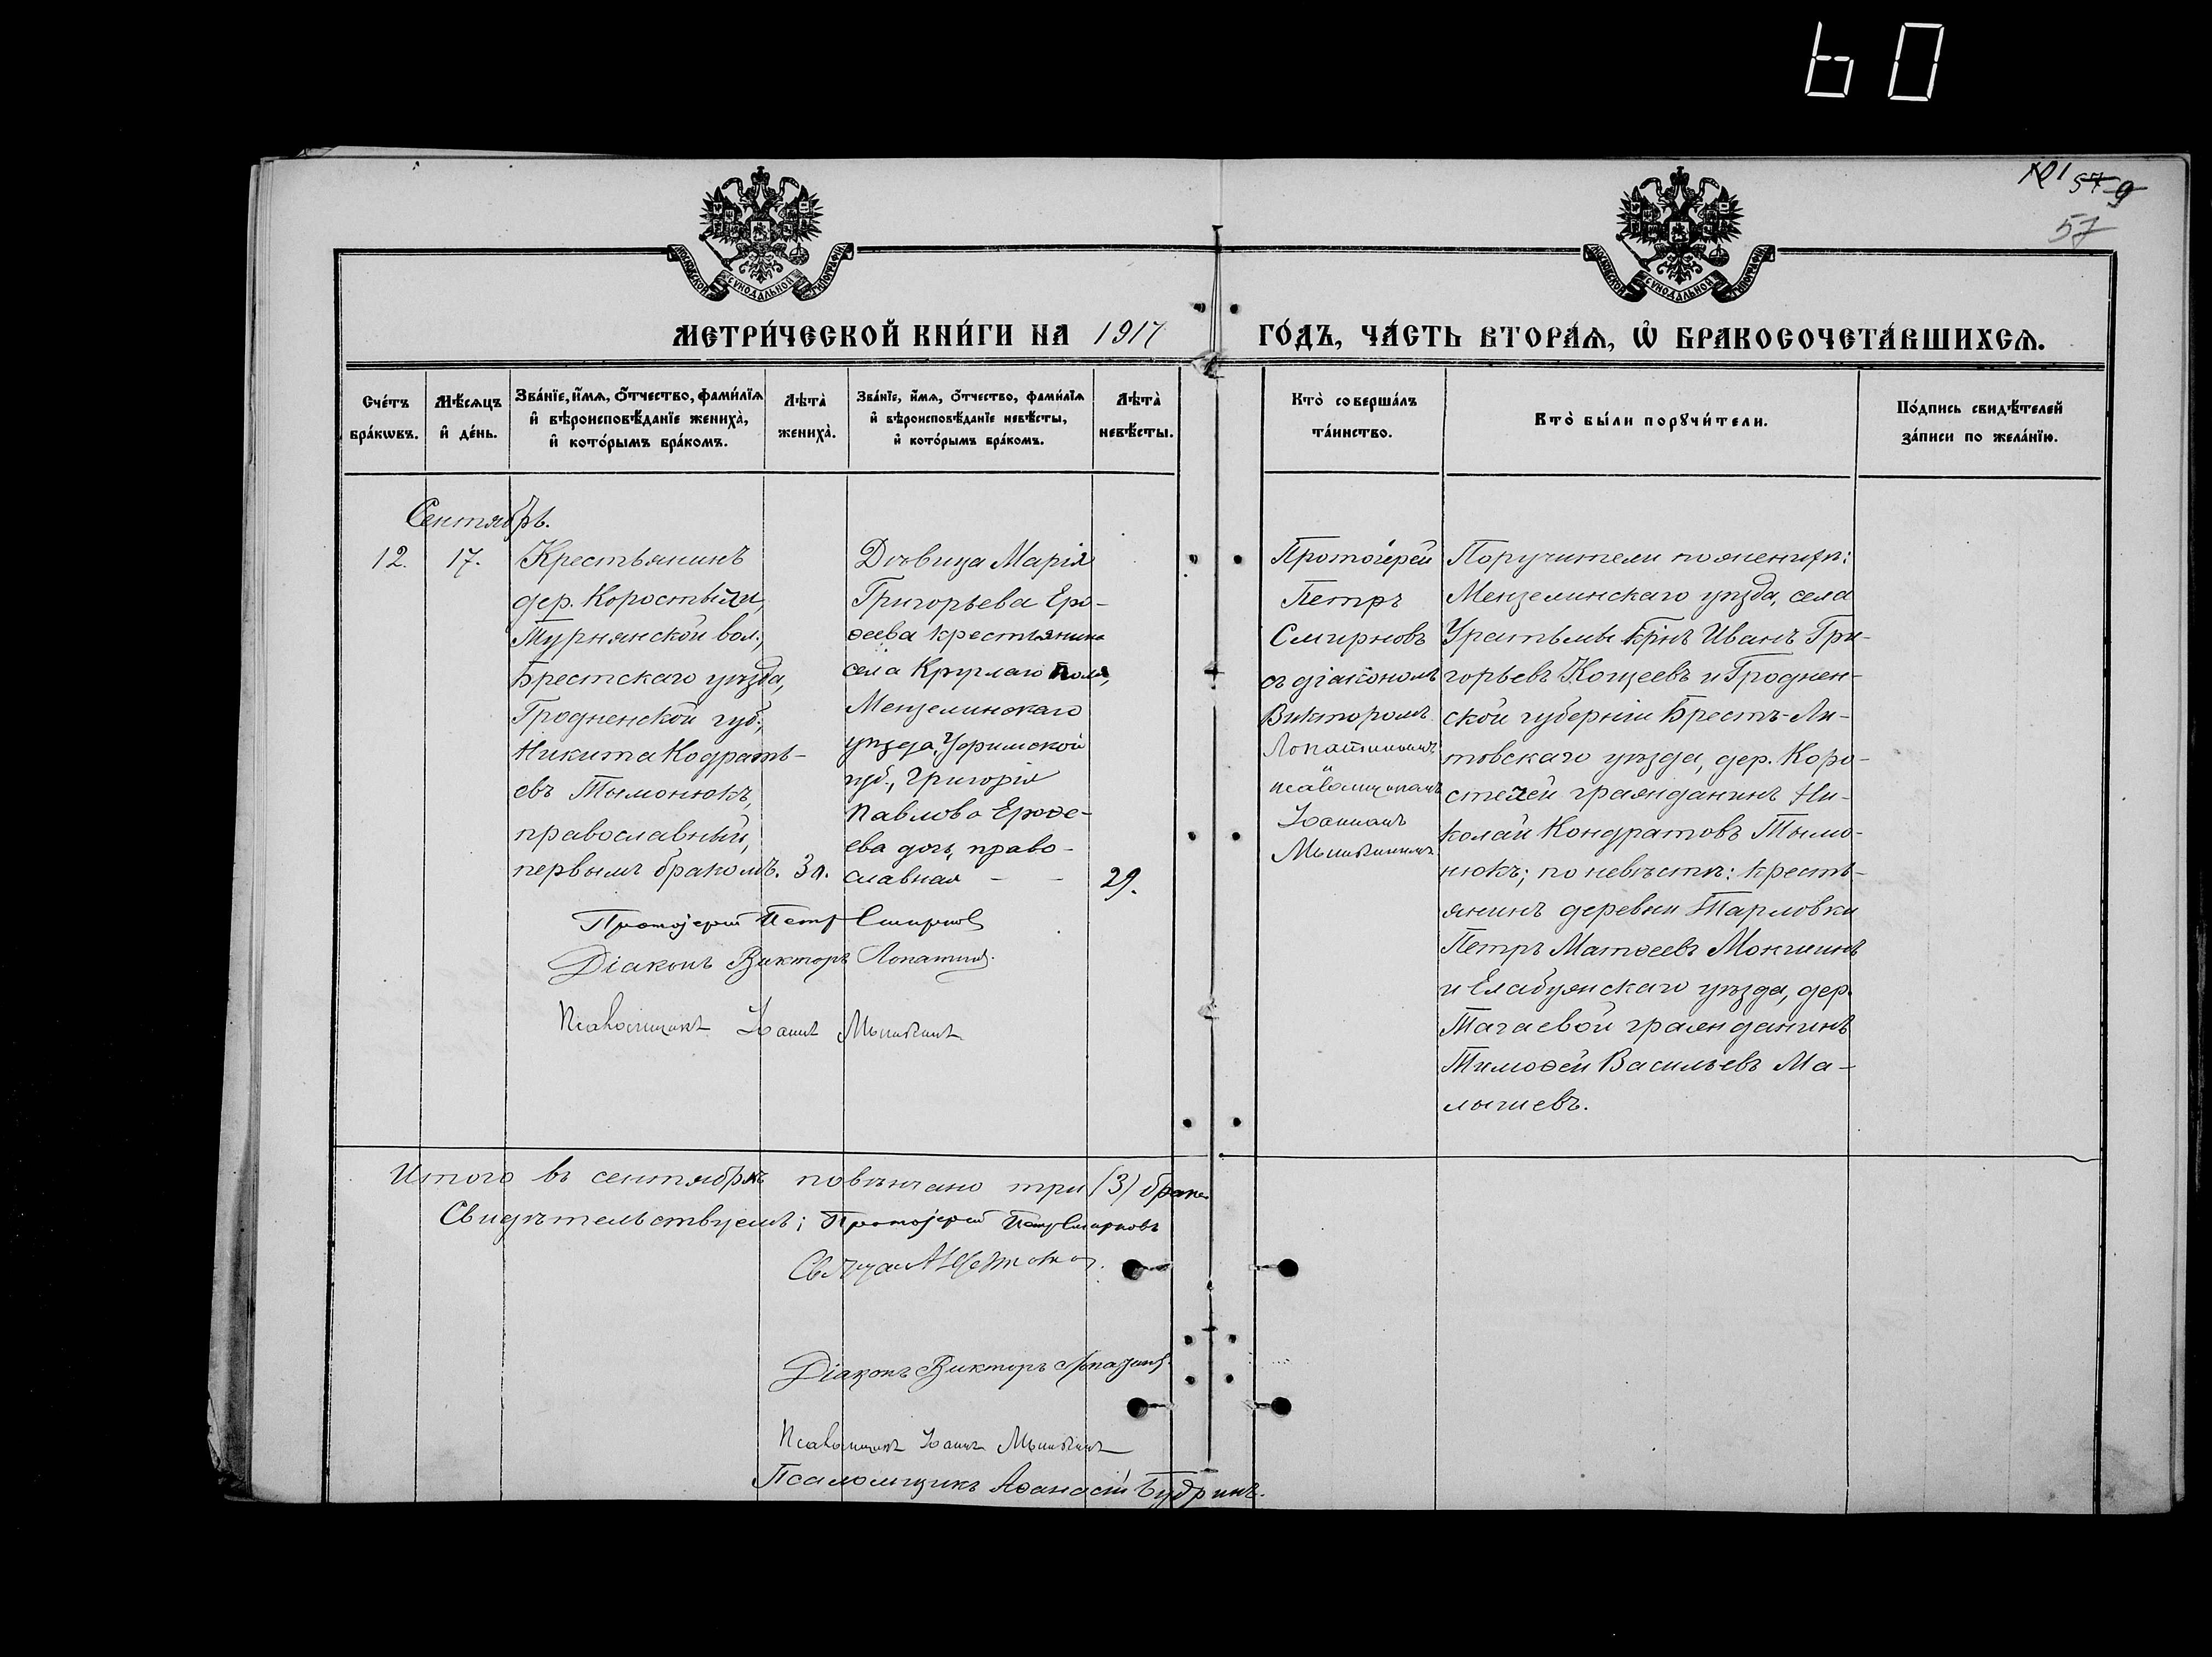 60
№1 57 9
57
МОСКОВСКОЙ СУНОДАЛЬНОЙ ТИПОГРАФІИ
МОСКОВСКОЙ СУНОДАЛЬНОЙ ТИПОГРАФІИ
МЕТРИ́ЧЕСКОЙ КНИ́ГИ НА 1917 ГО́ДЪ, ЧА́СТЬ ВТОРА́Ѧ, Ѡ҆ БРАКОСОЧЕТА́ВШИХСѦ.
Сче́тъ
бра́кѡвъ.
Мѣ́сѧцъ
и҆ де́нь.
Зва́нїе, и҆́мѧ, ѻ҆́тчество, фами́лїѧ
и҆ вѣроисповѣ́данїе жениха̀,
и҆ кото́рымъ бра́комъ.
Лѣта̀
жениха̀.
Зва́нїе, и҆́мѧ, ѻ҆́тчество, фами́лїѧ
и҆ вѣроисповѣ́данїе невѣ́сты,
и҆ кото́рымъ бра́комъ.
Лѣта̀
невѣ́сты.
Кто̀ соверша́лъ
та́инство.
Кто̀ бы́ли порꙋчи́тели.
По́дпись свидѣ́телей
за́писи по жела́нїю.
Сентябрь.
12.
17.
Крестьянинъ
дер. Коростычи,
Турнянской вол.,
Брестскаго уѣзда,
Гродненской губ.,
Никита Кодрать-
евъ Тымонюкъ,
православный,
первымъ бракомъ.
Дѣвица Марія
Григорьева Еро-
ѳеева крестьянина
села Круглаго поля,
Мензелинскаго
уѣзда, Уфимской
губ., Григорія
Павлова Ероѳе-
ева дочь, право-
славная - -
29.
Протоіерей
Петръ
Смирновъ
съ діакономъ
Викторомъ
Лопатинымъ
псаломщикомъ
Іоанномъ
Поручители по женихѣ:
Мензелинскаго уѣзда, села
Кр-нъ Иванъ Гри-
горьевъ Кощеевъ и Гроднен-
ской губерніи Брестъ-Ли-
товскаго уѣзда, дер. Коро-
стечей гражданинъ Ни-
колай Кондратовъ Тымо-
нюкъ; по невѣстѣ: кресть-
янинъ деревни Тарловки
Петръ Матѳеевъ Мокшинъ
и Елабужскаго уѣзда, дер.
Тагаевой гражданинъ
Тимоѳей Васильевъ Ма-
лышевъ.
Протоіерей Петр Смирнов
Діаконъ Викторъ Лопатинъ.
Псаломщикъ Іоаннъ
Итого въ сентябрѣ повѣнчано три (3) брака
Свидѣтельствуемъ: Протоіерей Петръ Смирновъ
Діаконъ Викторъ Лопатинъ.
Псаломщикъ Іоаннъ
Псаломщикъ Аѳанасій Будринъ.